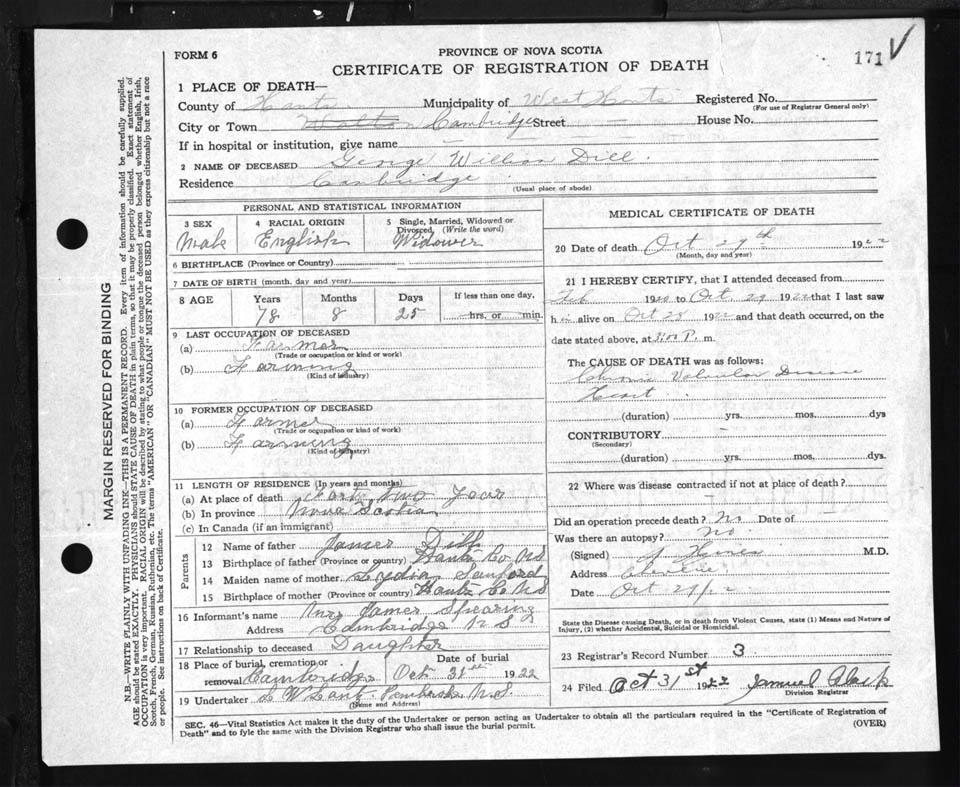 FORM 6
PROVINCE OF NOVA SCOTIA
CERTIFICATE OF REGISTRATION OF DEATH
171 V
1 PLACE OF DEATH—
County of Hants Municipality of West Hants Registered No.
(For use of Registrar General only)
City or Town Walton Cambridge Street — House No.
If in hospital or institution, give name
2 NAME OF DECEASED George William Dill.
Residence Cambridge
(Usual place of abode)
PERSONAL AND STATISTICAL INFORMATION
3 SEX 4 RACIAL ORIGIN 5 Single, Married, Widowed or Divorced, (Write the word)
Male English Widower
6 BIRTHPLACE (Province or Country)
7 DATE OF BIRTH (month, day and year)
8 AGE Years Months Days If less than one day,
78 8 25 hrs. or min.
9 LAST OCCUPATION OF DECEASED
(a) Farmer
(Trade or occupation or kind or work)
(b) Farming
(Kind of industry)
10 FORMER OCCUPATION OF DECEASED
(a) Farmer
(Trade or occupation or kind of work)
(b) Farming
(Kind of industry)
11 LENGTH OF RESIDENCE (In years and months)
(a) At place of death Forty two Years
(b) In province Nova Scotia
(c) In Canada (if an immigrant)
Parents
12 Name of father James Dill
13 Birthplace of father (Province or country) Hants Co NS
14 Maiden name of mother Lydia Sanford
15 Birthplace of mother (Province or country) Hants Co NS
16 Informant's name Mrs James Spearing
Address Cambridge N S
17 Relationship to deceased Daughter
18 Place of burial, cremation or removal Cambridge Date of burial Oct 31st 1922
19 Undertaker N.S.
(Name and Address)
MEDICAL CERTIFICATE OF DEATH
20 Date of death Oct 29th 1922
(Month, day and year)
21 I HEREBY CERTIFY, that I attended deceased from
Feb 1920 to Oct. 29 1922 that I last saw
him alive on Oct 28 1922 and that death occurred, on
the date stated above, at P. m.
The CAUSE OF DEATH was as follows:
Chronic Valvular Disease
Heart
(duration) yrs. mos. dys
CONTRIBUTORY
(Secondary)
(duration) yrs. mos. dys.
22 Where was disease contracted if not at place of death?
Did an operation precede death? No Date of
Was there an autopsy? No
(Signed) M.D.
Address
Date Oct 29/22
State the Disease causing Death, or in death from Violent Causes, state (1) Means and Nature of
Injury, (2) whether Accidental, Suicidal or Homicidal.
23 Registrar's Record Number 3
24 Filed Oct 31st 1922 Samuel
Division Registrar
SEC. 46—Vital Statistics Act makes it the duty of the Undertaker or person acting as Undertaker to obtain all the particulars required in the "Certificate of Registration of
Death" and to fyle the same with the Division Registrar who shall issue the burial permit. (OVER)
MARGIN RESERVED FOR BINDING
N.B.—WRITE PLAINLY WITH UNFADING INK—THIS IS A PERMANENT RECORD. Every item of information should be carefully supplied.
AGE should be stated EXACTLY. PHYSICIANS should STATE CAUSE OF DEATH in plain terms, so that it may be properly classified. Exact statement of
OCCUPATION is very important. RACIAL ORIGIN will be described by stating to what people or tongue the deceased person belonged whether English, Irish,
Scotch, French, German, Russian, Ruthenian, etc. The terms "AMERICAN" OR "CANADIAN" MUST NOT BE USED as they express citizenship but not a race
or people. See instructions on back of Certificate.